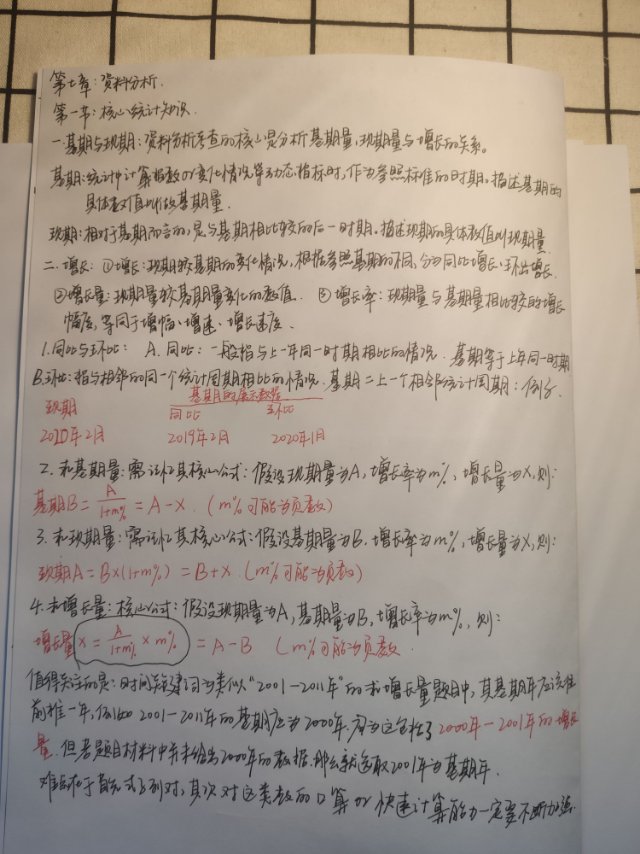 第七章：资料分析.
第一节：核心统计知识.
一.基期与现期：资料分析考查的核心是分析基期量,现期量与增长的关系。
基期：统计中计算指数or变化情况等动态指标时,作为参照标准的时期,描述基期的
具体数值叫做基期量.
现期：相对于基期而言的,是与基期相比较的后一时期.描述现期的具体数值叫现期量
二.增长：①增长：现期较基期的变化情况,根据参照基期的不同,分为同比增长、环比增长.
②增长量：现期量较基期量变化的数值. ③增长率：现期量与基期量相比较的增长
幅度,等同于增幅、增速、增长速度.
1.同比与环比： A.同比：一般指与上一年同一时期相比的情况. 基期等于上年同一时期
B.环比：指与相邻的同一个统计周期相比的情况.基期=上一个相邻统计周期：例子.
现期 基期的展示数据
同比 环比
2020年2月 2019年2月 2020年1月
2.求基期量：需记忆其核心公式：假设现期量为A,增长率为m%,增长量为X,则：
基期B=A/(1+m%)=A-X.(m%可能为负数)
3.求现期量：需记忆其核心公式：假设基期量为B.增长率为m%,增长量为X,则：
现期A=B×(1+m%)=B+X.(m%可能为负数)
4.求增长量：核心公式：假设现期量为A,基期量为B,增长率为m%,则：
增长量X=A/(1+m%)×m%=A-B (m%可能为负数.
值得关注的是：时间关键词为类似“2001-2011年”的求增长量题目中,其基期年应该往
前推一年,例如2001-2011年的基期应为2000年.因为这包括了2000年-2001年的增长
量.但若题目材料中并未给出2000年的数据.那么就选取2001年为基期年.
难点在于首先式子列对,其次对这类数的口算or快速计算能力一定要不断加强.